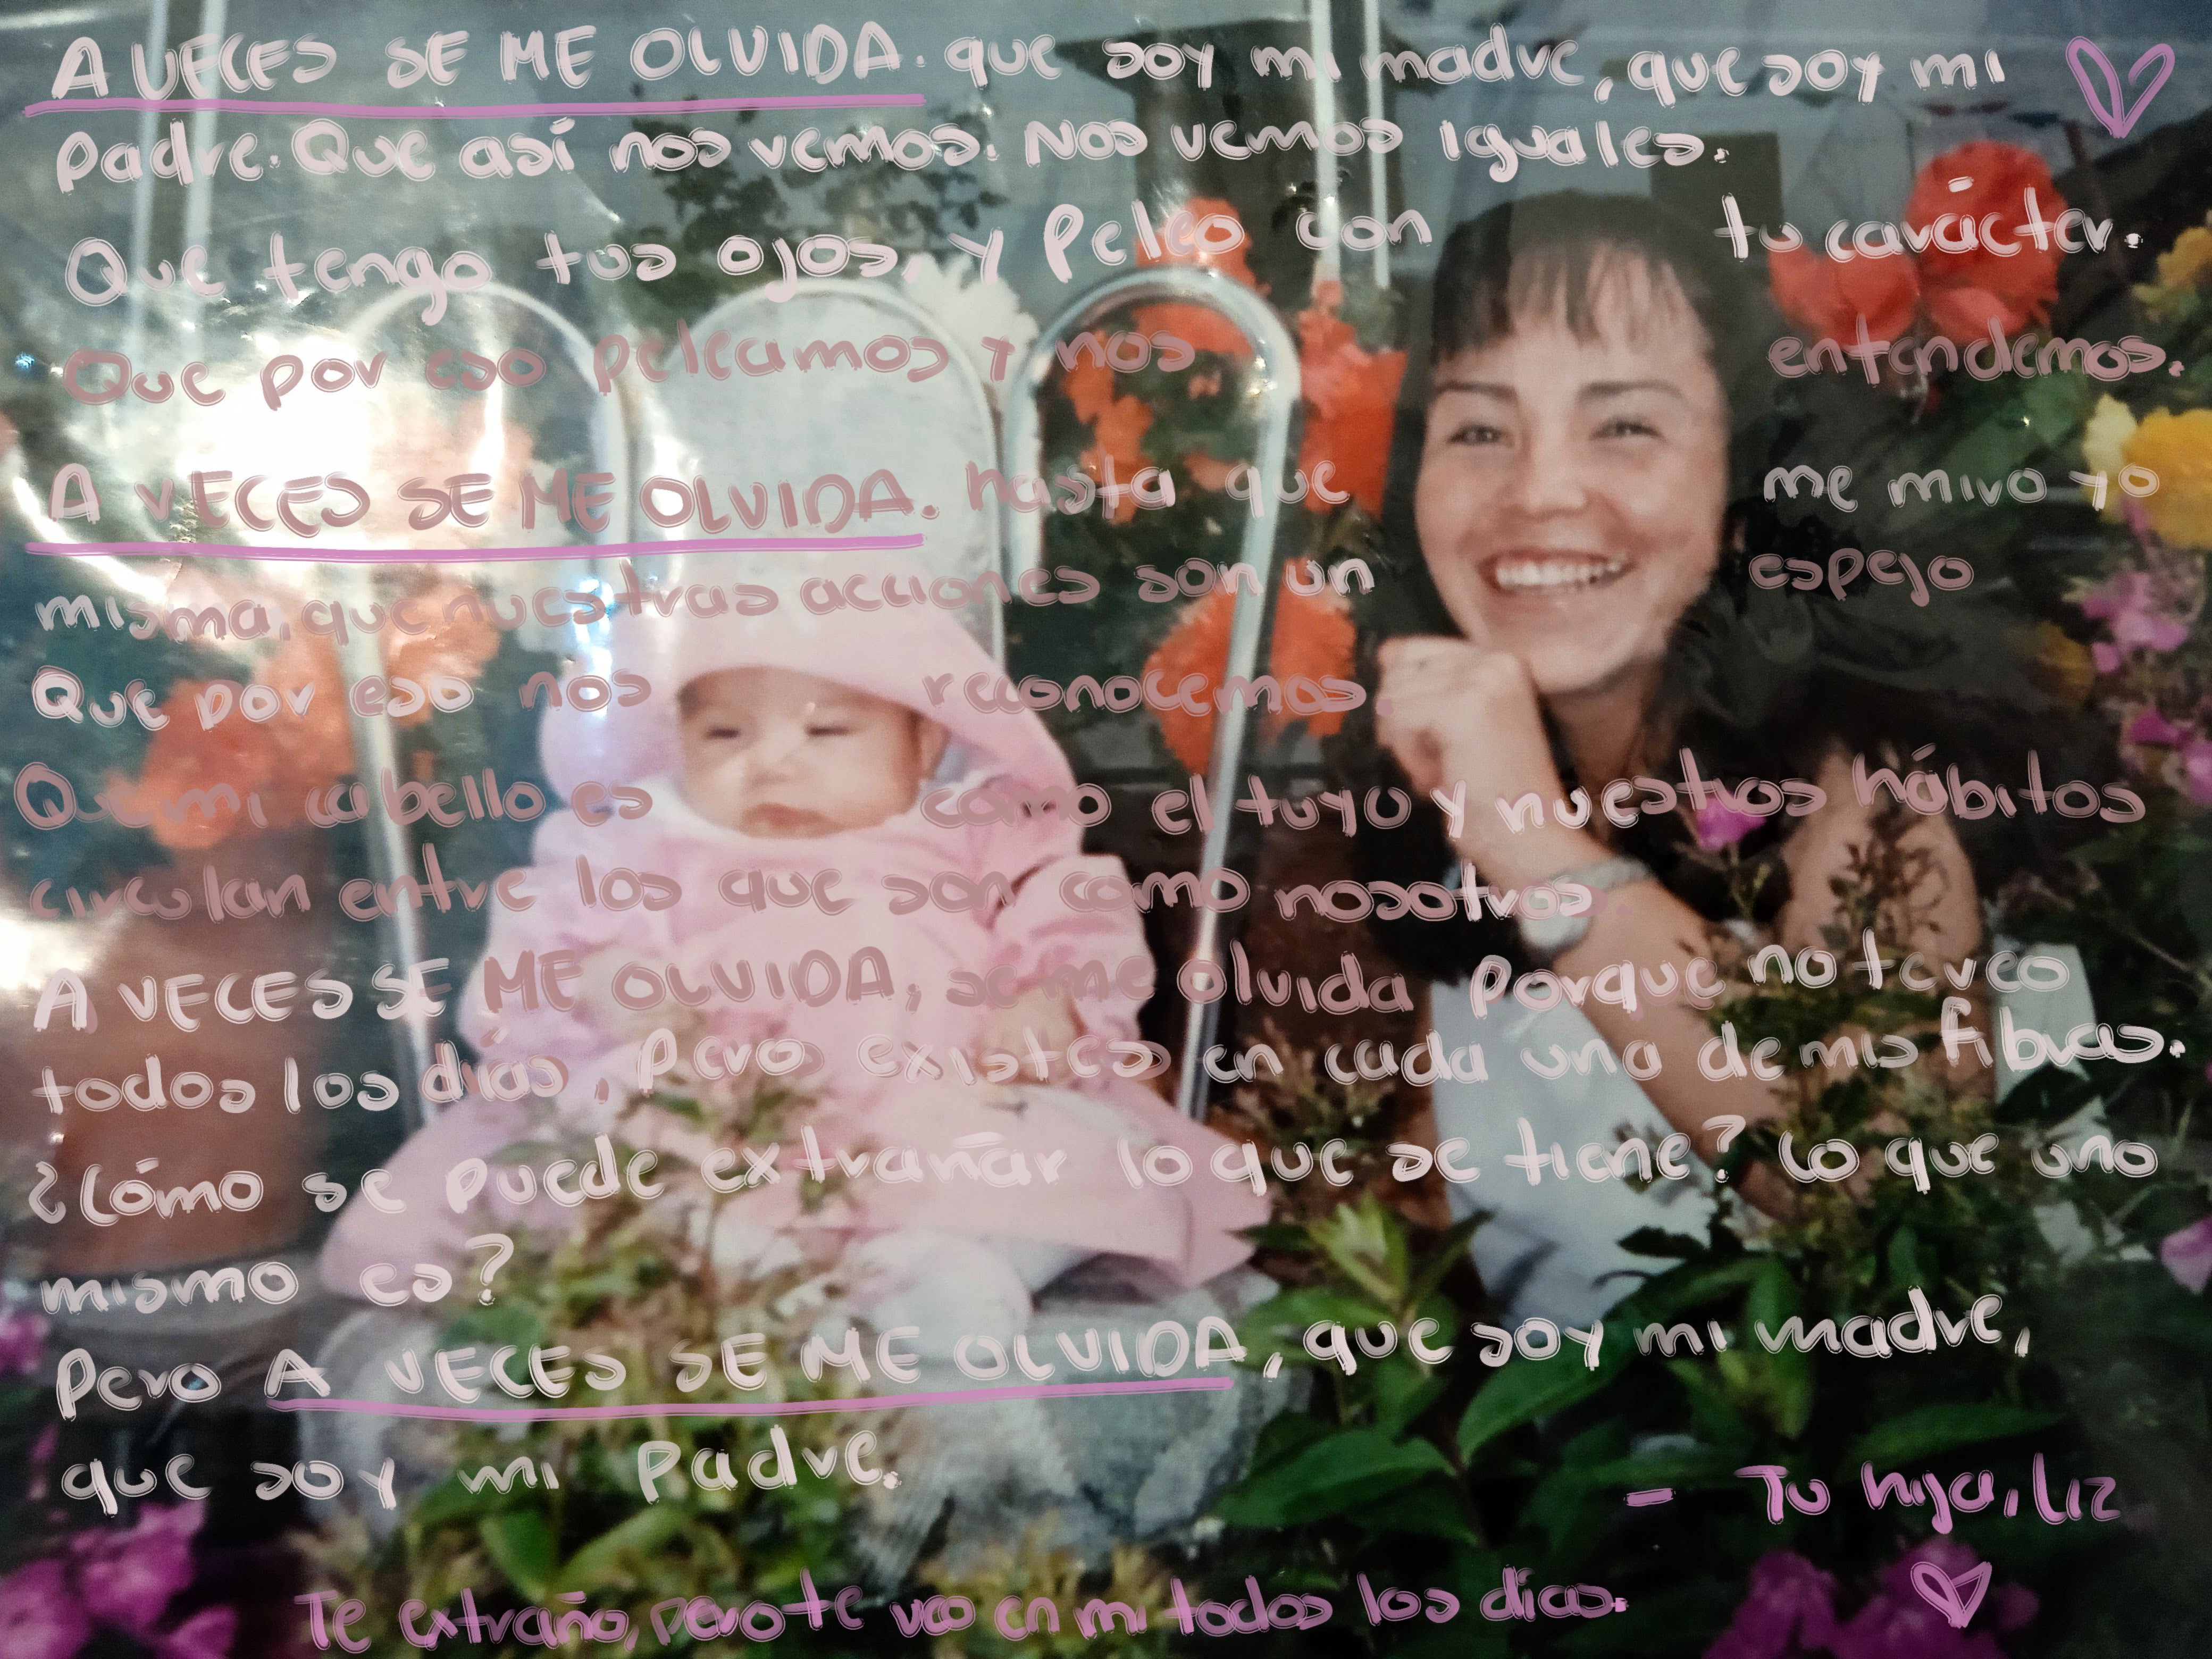 A VECES SE ME OLVIDA. que soy mi madre, que soy mi
padre. Que así nos vemos. Nos vemos iguales.
Que tengo tus ojos, y peleo con tu carácter.
Que por eso peleamos y nos entendemos.
A VECES SE ME OLVIDA. hasta que me miro yo
misma, que nuestras acciones son un espejo
Que por eso nos reconocemos.
Que mi cabello es como el tuyo y nuestros hábitos
circulan entre los que son como nosotros.
A VECES SE ME OLVIDA, se me olvida porque no te veo
todos los días, pero existes en cada una de mis fibras.
¿Cómo se puede extrañar lo que se tiene? Lo que uno
mismo es?
Pero A VECES SE ME OLVIDA, que soy mi madre,
que soy mi padre.
- Tu hija, Liz
Te extraño, pero te veo en mi todos los días.